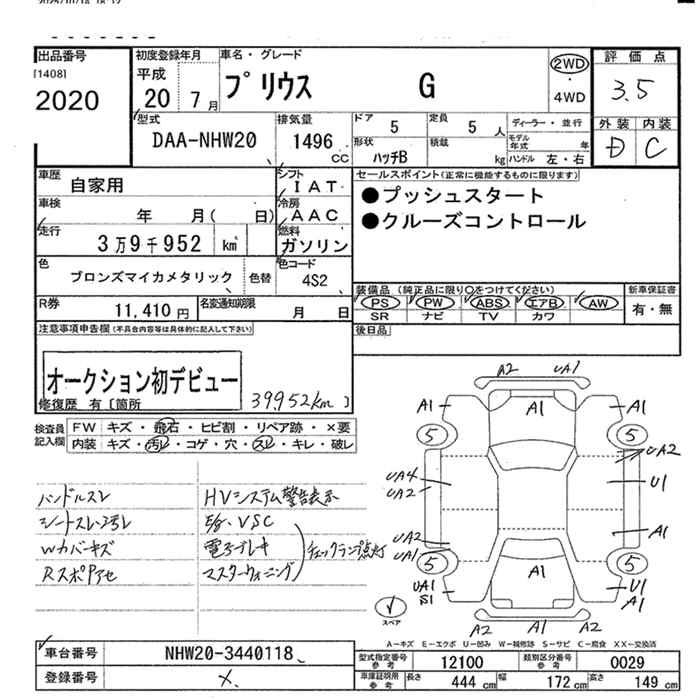 出品番号 [1408] 2020
初度登録年月 平成 20 7月
車名・グレード プリウス G
2WD ・ 4WD
評価点 3.5
外装 内装 D C
型式 DAA-NHW20
排気量 1496 CC
ドア 5 定員 5 人
形状 ハッチB 積載 kg
ディーラー・並行
モデル年式 年
ハンドル 左・右
車歴 自家用
シフト IAT
セールスポイント(正常に機能するものに限ります)
●プッシュスタート
●クルーズコントロール
車検 年 月( 日)
冷房 AAC
走行 3万9千952 km
燃料 ガソリン
色 ブロンズマイカメタリック 色替
色コード 4S2
装備品 (純正品に限り○をつけてください) 新車保証書
PS PW ABS エアB AW 有・無
SR ナビ TV カワ
R券 11,410円 名変通知期限 月 日
後日品
注意事項申告欄(不具合内容等は具体的に記入して下さい)
オークション初デビュー
修復歴 有〔箇所 39952km 〕
検査員記入欄
FW キズ・飛石・ヒビ割・リペア跡・×要
内装 キズ・汚レ・コゲ・穴・スレ・キレ・破レ
ハンドルスレ HVシステム警告表示
シートスレ・汚レ E/g・VSC
Wカバーキズ 電子ブレーキ チェックランプ点灯
Rスポアセ マスターウォーニング
A2 UA1
A1 A1 A1
5 5
UA2
UA4 U1
UA2
A1
UA2
UA1
5 5
UA1 A1 U1
S1 A1
A2 A1 A2
スペア
A-キズ E-エクボ U-凹み W-補修跡 S-サビ C-腐食 XX-交換済
車台番号 NHW20-3440118
登録番号 ×
型式指定番号 参考 12100 類別区分番号 参考 0029
車庫証明用 参考 長さ 444 cm 幅 172 cm 高さ 149 cm